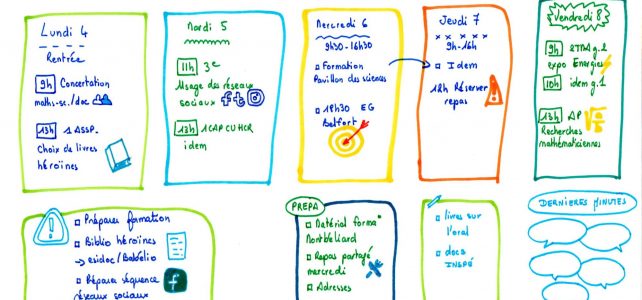 Lundi 4
Rentrée
9h Concertation
maths-sc./doc
13h 1 ASSP.
Choix de livres
héroïnes
Mardi 5
11h 3e
Usage des réseaux
sociaux f t
13h 1CAP CU HCR
idem
Mercredi 6
9h30-16h30
Formation
Pavillon des sciences
18h30 EG
Belfort
Jeudi 7
9h-16h
Idem
12h Réserver
repas
Vendredi 8
9h 2TM g.2
expo Energies
10h idem g.1
13h AP
Recherches
mathématiciennes
Préparer formation
Biblio héroïnes
→ esidoc/Babelio
Réparer séquence
réseaux sociaux
f
PREPA
Matériel forma°
Montbéliard
Repas partagé
mercredi
Adresses
livres sur
l'oral
docs
INSPÉ
DERNIERES MINUTES